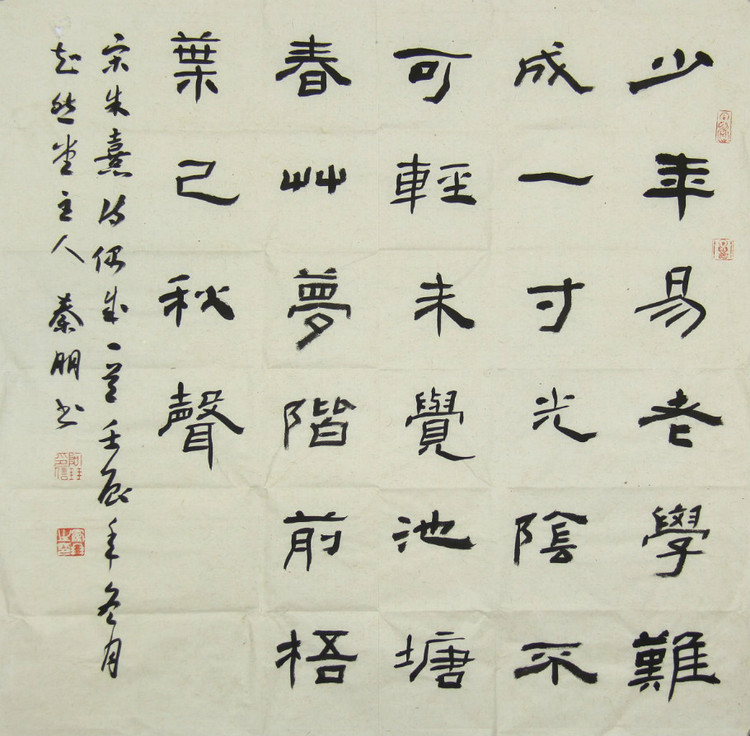 少年易老學難
成一寸光陰不
可輕未覺池塘
春艸夢階前梧
葉已秋聲
宋朱熹詩偶成一首壬辰年冬月
超然堂主人秦朋书